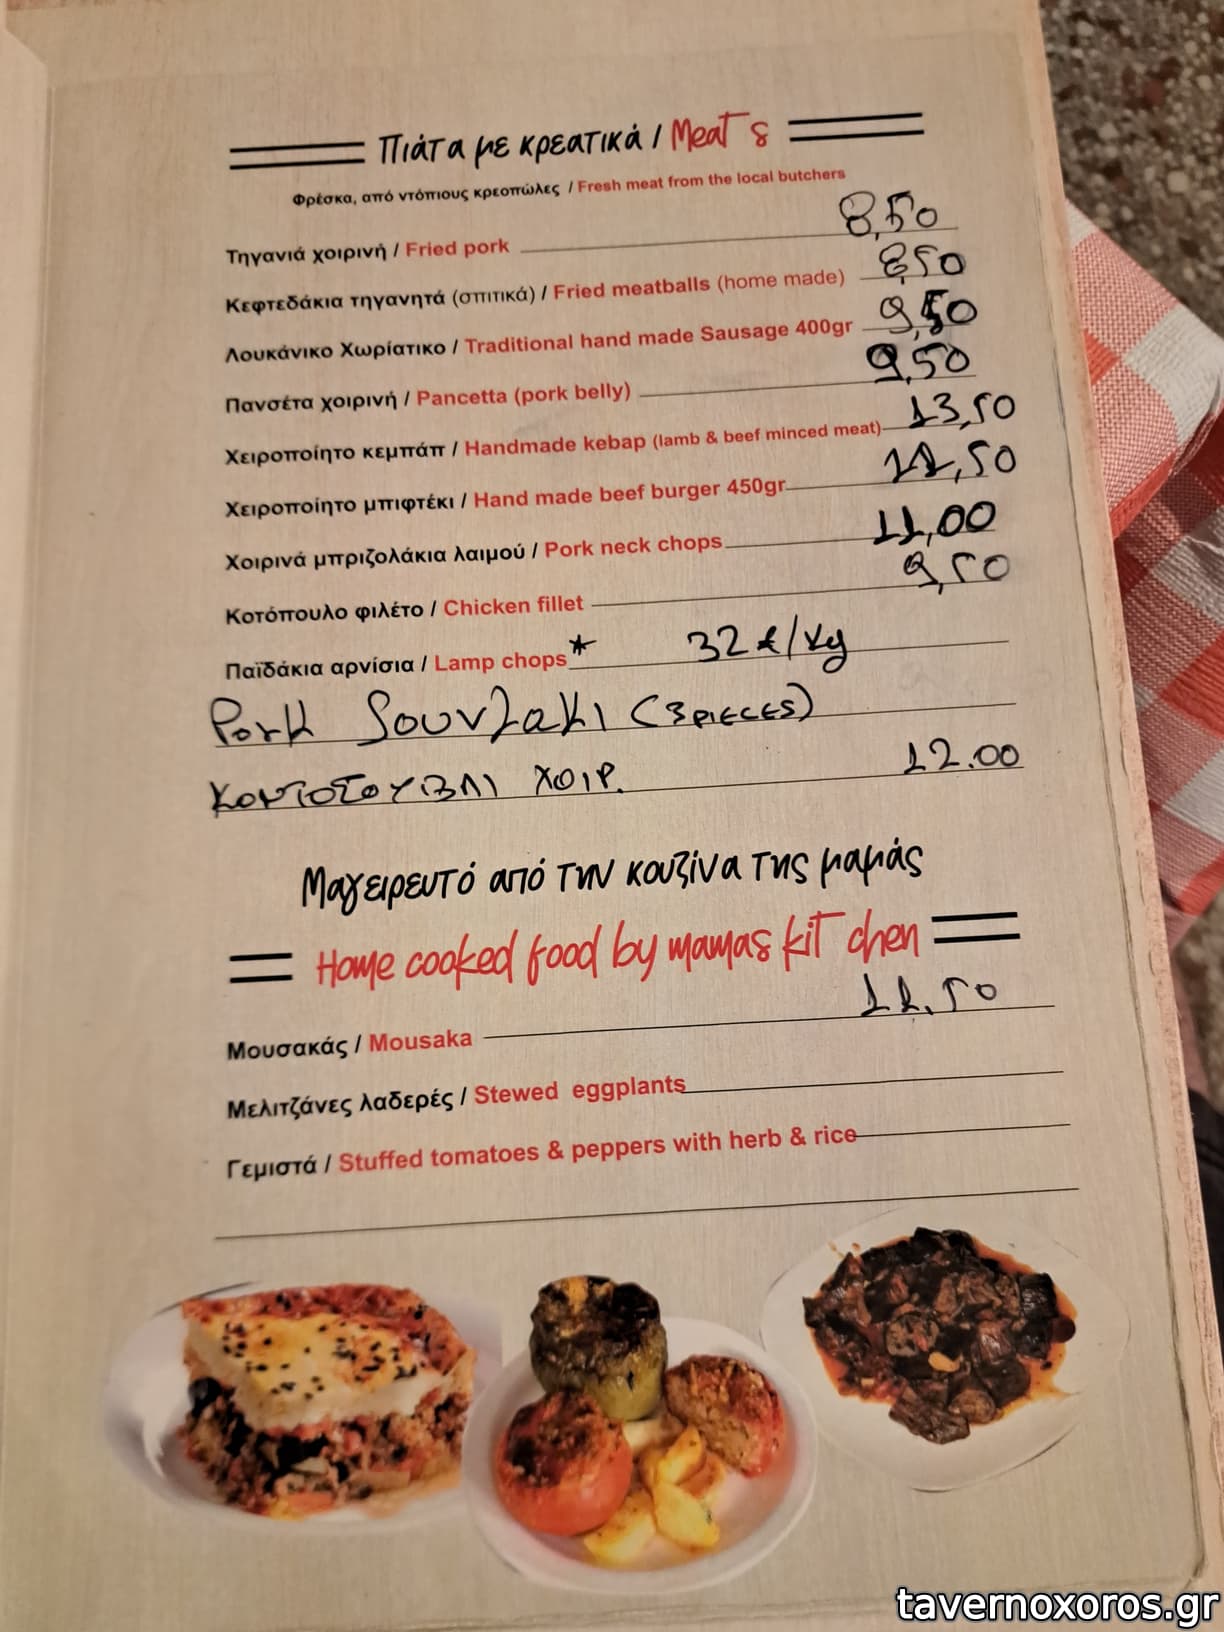 Πιάτα με κρεατικά / Meat s
Φρέσκα, από ντόπιους κρεοπώλες / Fresh meat from the local butchers
Τηγανιά χοιρινή / Fried pork 8,50
Κεφτεδάκια τηγανητά (σπιτικά) / Fried meatballs (home made) 8,50
Λουκάνικο Χωρίατικο / Traditional hand made Sausage 400gr 9,50
Πανσέτα χοιρινή / Pancetta (pork belly) 9,50
Χειροποίητο κεμπάπ / Handmade kebap (lamb & beef minced meat) 13,50
Χειροποίητο μπιφτέκι / Hand made beef burger 450gr 11,50
Χοιρινά μπριζολάκια λαιμού / Pork neck chops 11,00
Κοτόπουλο φιλέτο / Chicken fillet 9,50
Παϊδάκια αρνίσια / Lamp chops* 32 €/Kg
Pork Souvlaki (3 PIECES)
ΚΟΝΤΟΣΟΥΒΛΙ ΧΟΙΡ. 12.00
Μαγειρευτό από την κουζίνα της μαμάς
Home cooked food by mamas kit chen
Μουσακάς / Mousaka 11.50
Μελιτζάνες λαδερές / Stewed eggplants
Γεμιστά / Stuffed tomatoes & peppers with herb & rice
tavernoxoros.gr